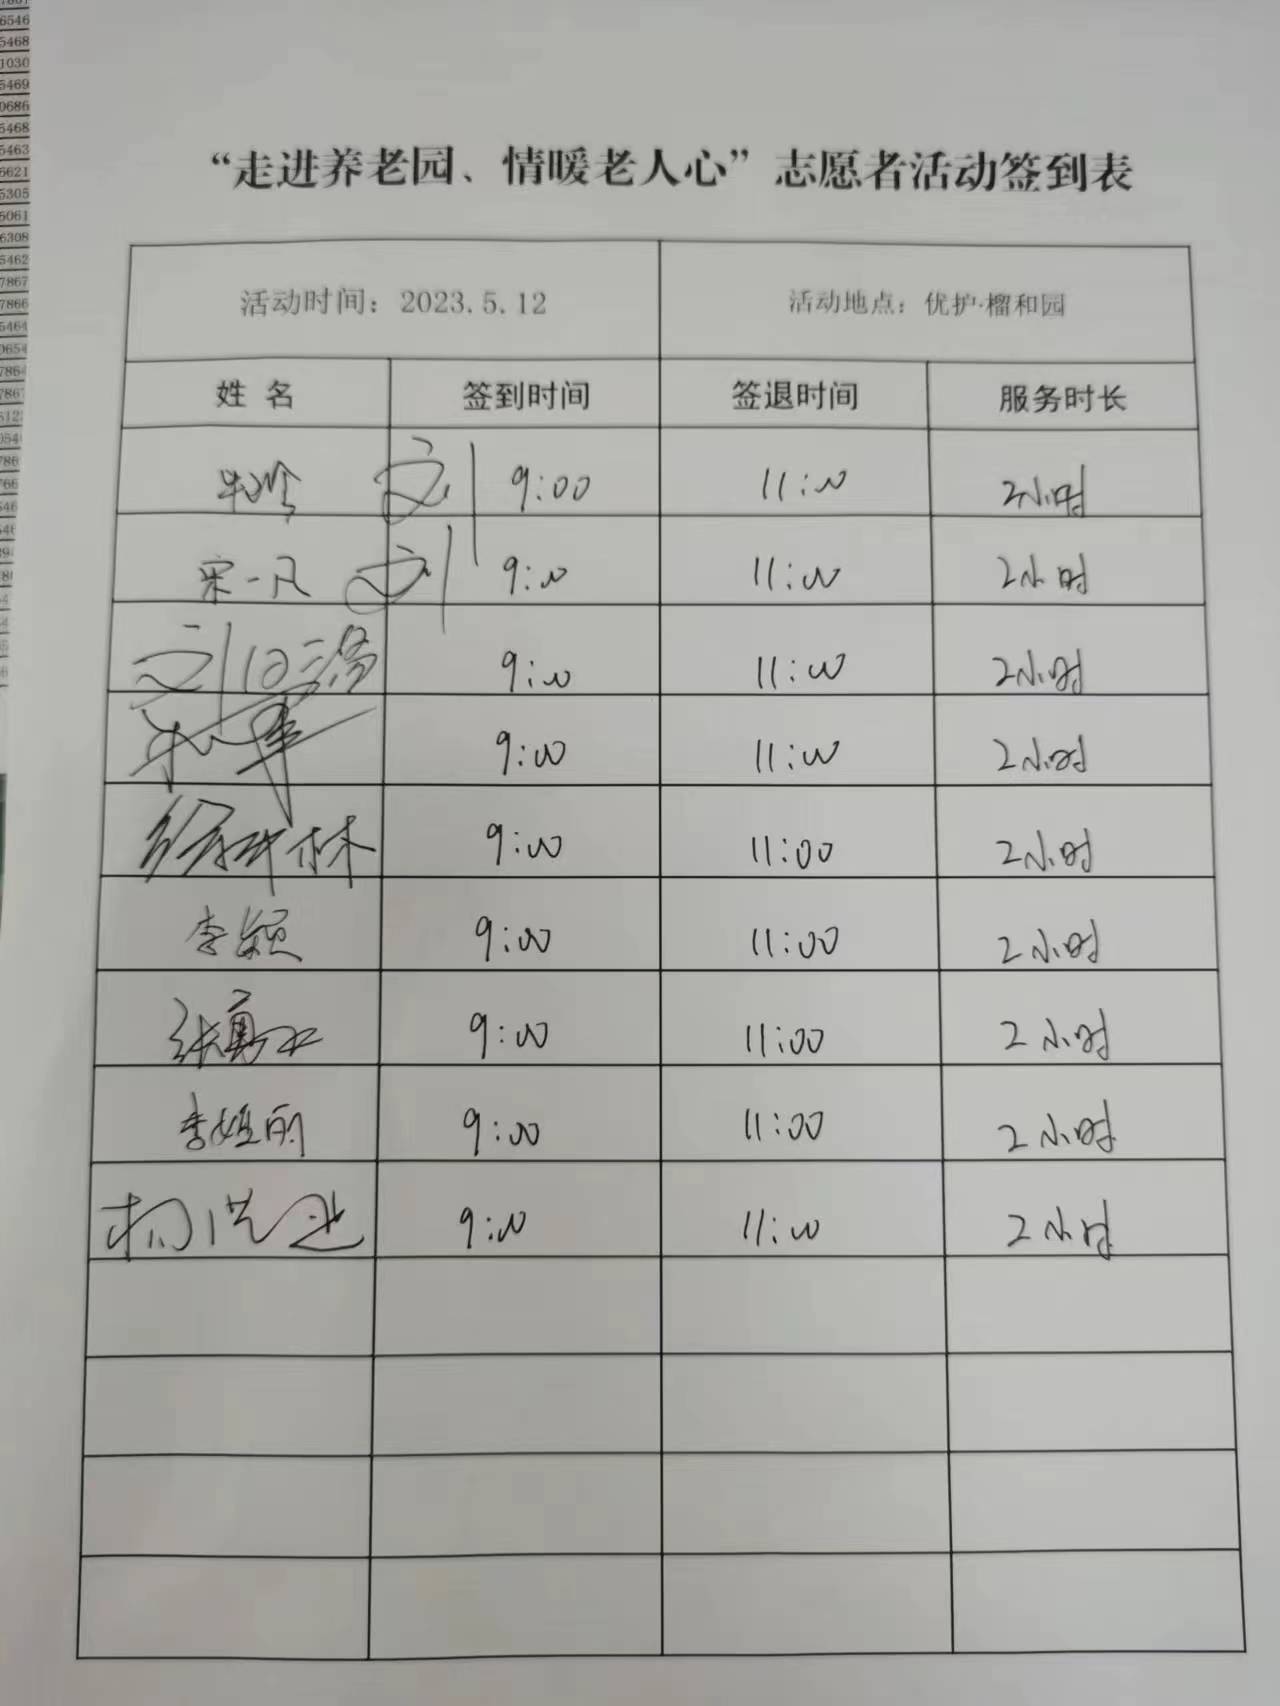 6546
5468
1030
5469
0686
5468
5463
5621
5305
5061
6308
5462
7867
7866
5464
0654
7864
“走进养老园、情暖老人心”志愿者活动签到表
活动时间：2023.5.12 活动地点：优护·榴和园
姓 名 签到时间 签退时间 服务时长
刘 9:00 11:00 2小时
宋一凡 刘 9:00 11:00 2小时
9:00 11:00 2小时
9:00 11:00 2小时
9:00 11:00 2小时
李颖 9:00 11:00 2小时
9:00 11:00 2小时
9:00 11:00 2小时
9:00 11:00 2小时